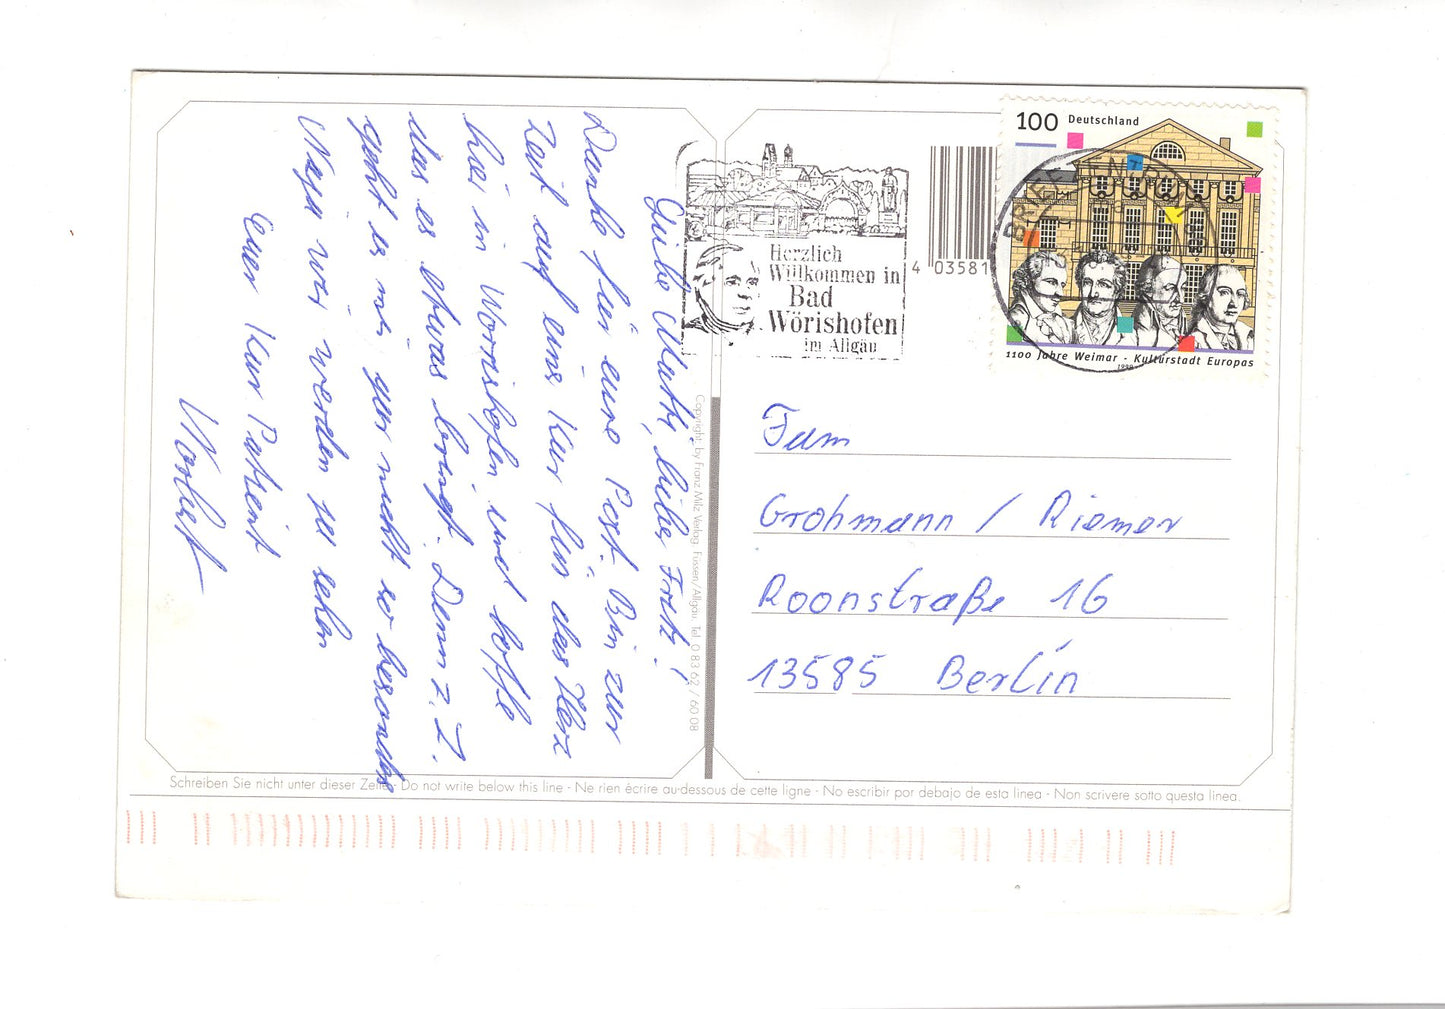 Liebe Matti, lieber Fritz!
Danke für eure Post. Bin zur
Zeit auf eine Kur für das Herz
hier in Wörrishofen und hoffe
das es etwas bringt. Denn z. Z.
geht es mir gar nicht so besonders
Na ja wir werden ja sehen
Euer Kur Patient
Norbert
Copyright by Franz Milz Verlag, Füssen/Allgäu, Tel. 0 83 62 / 60 08
Herzlich
Willkommen in
Bad
Wörishofen
im Allgäu
4 03581
100 Deutschland
BRIEFZENTRUM
1100 Jahre Weimar - Kulturstadt Europas
1999
Fam
Grohmann / Riemer
Roonstraße 16
13585 Berlin
Schreiben Sie nicht unter dieser Zeile - Do not write below this line - Ne rien écrire au-dessous de cette ligne - No escribir por debajo de esta linea - Non scrivere sotto questa linea.